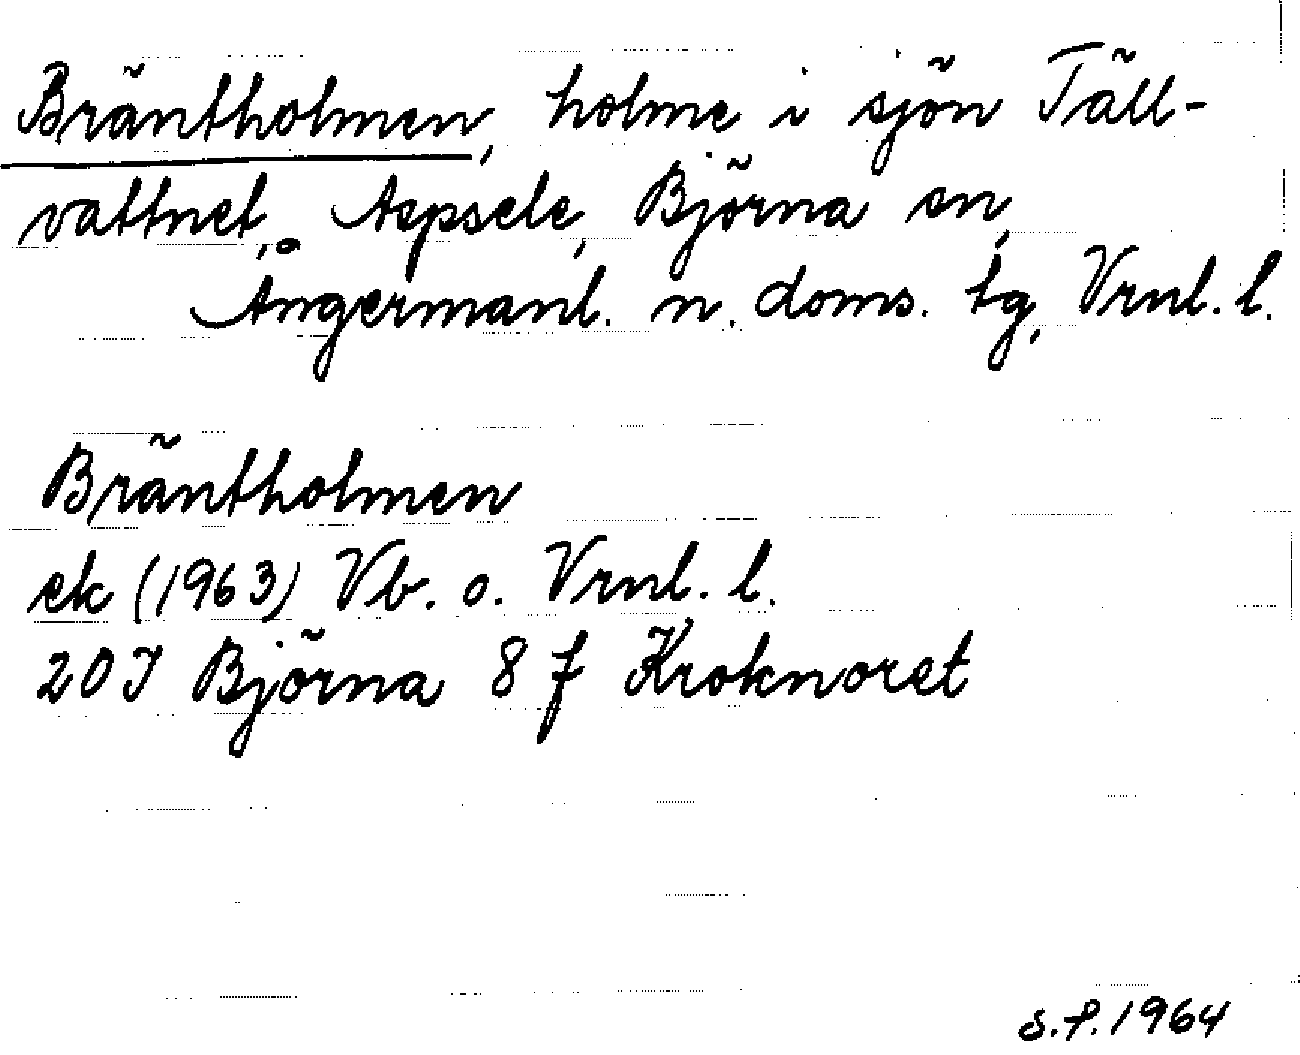 Bräntholmen, holme i sjön Täll-
vattnet, Aspsele, Björna sn,
Ångermanl. n. doms. tg, Vrnl. l.
Bräntholmen
ek (1963) Vb. o. Vrnl. l.
20J Björna 8 f Kroknoret
S.F. 1964